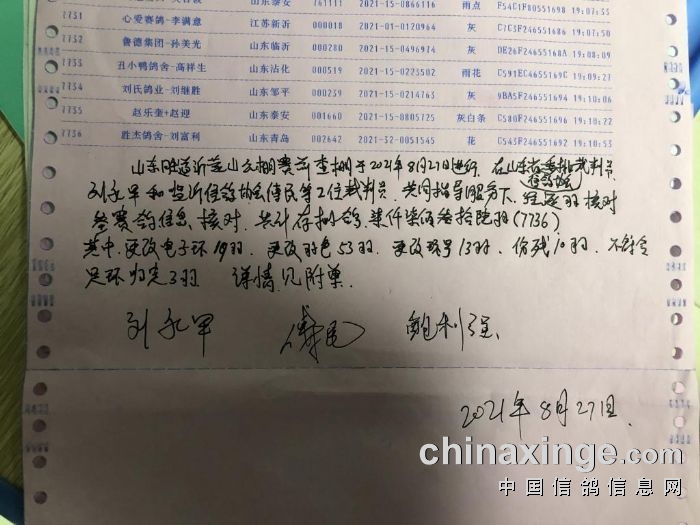 741111 2021-15-0866116 雨点 F54C1F80551698 19:07:33
7731 心爱赛鸽-李满意 江苏新沂 000018 2021-01-0120964 灰 C7C3F246551686 19:07:50
7732 鲁德集团-孙美光 山东临沂 000280 2021-15-0496974 灰 DE26F24655168A 19:08:09
7733 丑小鸭鸽舍-高祥生 山东沾化 000519 2021-15-0223502 雨花 C591EC4655169C 19:09:27
7734 刘氏鸽业-刘继胜 山东邹平 000239 2021-15-0214763 灰 9BA5F246551694 19:10:06
7735 赵乐奎+赵迎 山东泰安 001660 2021-15-0805725 灰白条 C580F246551696 19:10:22
7736 胜杰鸽舍-刘富利 山东青岛 002642 2021-32-0051545 花 C543F246551692 19:10:53
山东 沂蒙山公棚赛前查棚于2021年8月27日进行，在山东省 裁判员
信鸽协会
刘永军和临沂信鸽协会傅民等2位裁判员，共同指导服务下，经逐羽核对
参赛鸽信息核对，共计存棚鸽，柒仟柒佰叁拾陆羽(7736)
其中，更改电子环19羽，更改羽色53羽，更改环号13羽，伤残10羽，不符合
足环归先3羽 详情见附单。
刘永军 傅民 鲍利强
2021年8月27日
chinaxinge.com
中国信鸽信息网